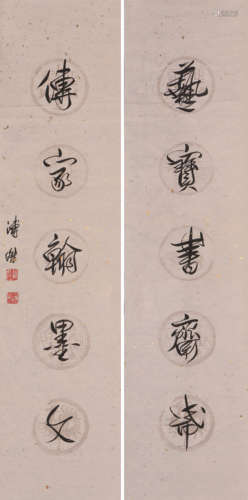 藝寶書齋
傳家翰墨文
溥傑